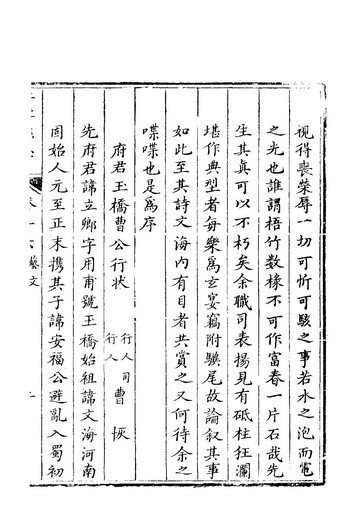 視得喪榮辱一切可忻可駭之事若水之泡而電
之光也誰謂梧竹數椽不可作富春一片石哉先
生其真可以不朽矣余職司表揚見有砥柱狂瀾
堪作典型者每樂爲玄宴竊附驥尾故論叙其事
如此至其詩文海内有目者共賞之又何待余之
喋喋也是爲序
府君王橋曹公行状
行人司行人 曹恢
先府君諱立卿字用甫號王橋始祖諱文海河南
固始人元至正末携其子諱安福公避亂入蜀初
卷十六 藝文